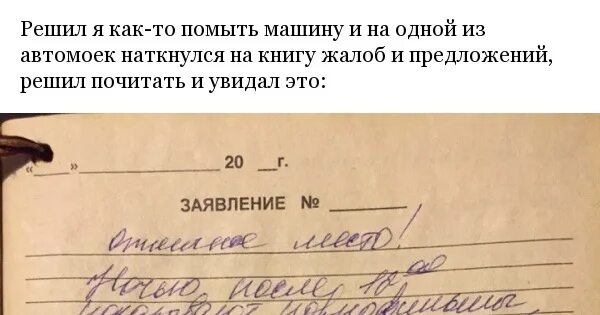 Решил я как-то помыть машину и на одной из
автомоек наткнулся на книгу жалоб и предложений,
решил почитать и увидал это:
«___» ______________ 20 __г.
ЗАЯВЛЕНИЕ № ________
отличное место!
Ночью после 12 00
показывают порнофильмы